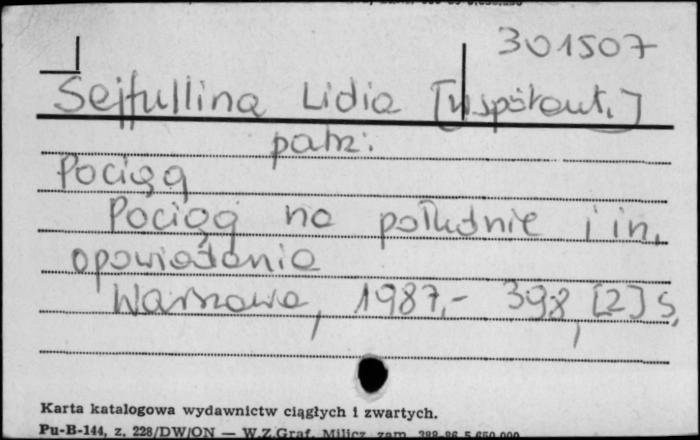 301507
Sejfullina Lidia [współaut.]
patrz:
Pociąg
Pociąg na południe i in.
opowiadania
Warszawa, 1987.- 398, [2] s.
Karta katalogowa wydawnictw ciągłych i zwartych.
Pu-B-144, z. 228/DW/ON — W.Z.Graf. Milicz, zam. 388-86 5.650.000